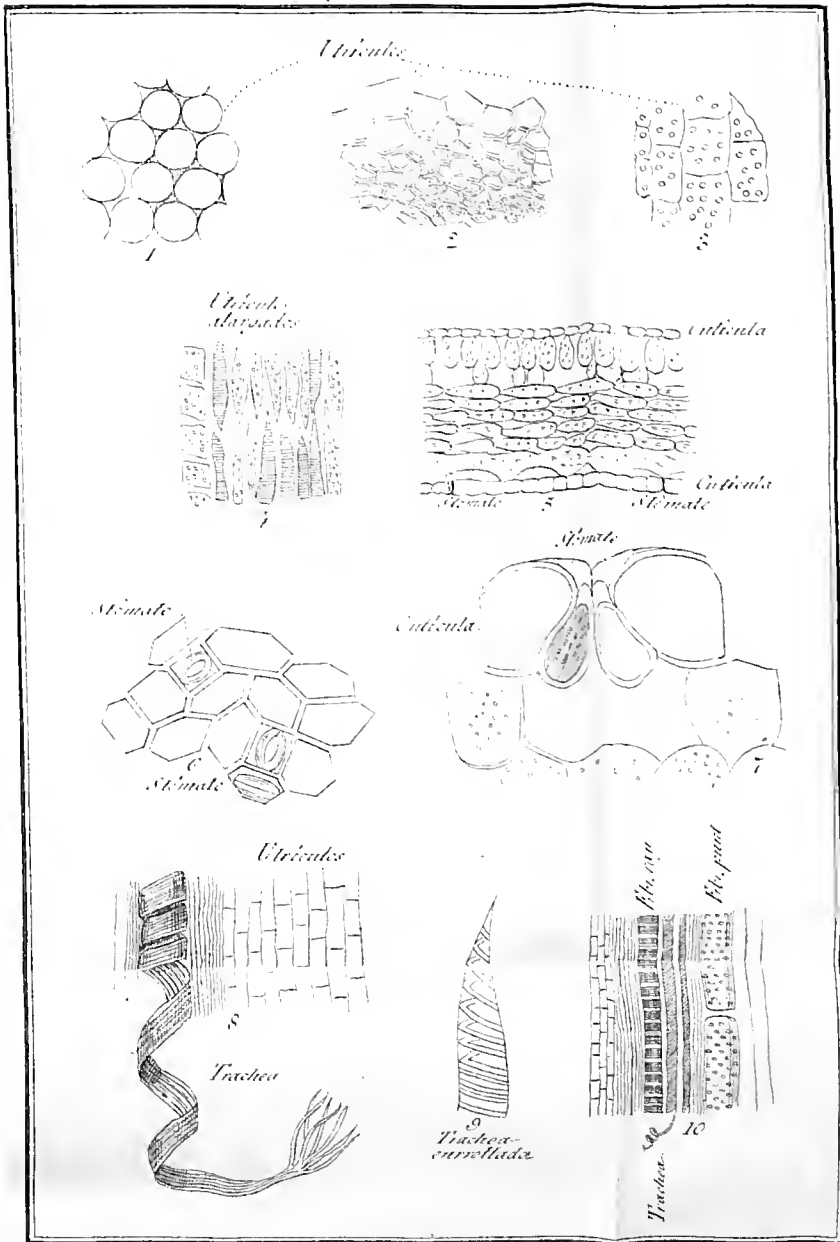 Utricules
1
2
3
Utricul.
alargados
Cuticula
Cuticula
Stomate
5
Stomate
4
Stomate
Stomate
Cuticula
6
Stomate
7
Utricules
8
Trachea
9
Trachea
enrrollada
Fib. ray
Fib. punt
10
Trachea